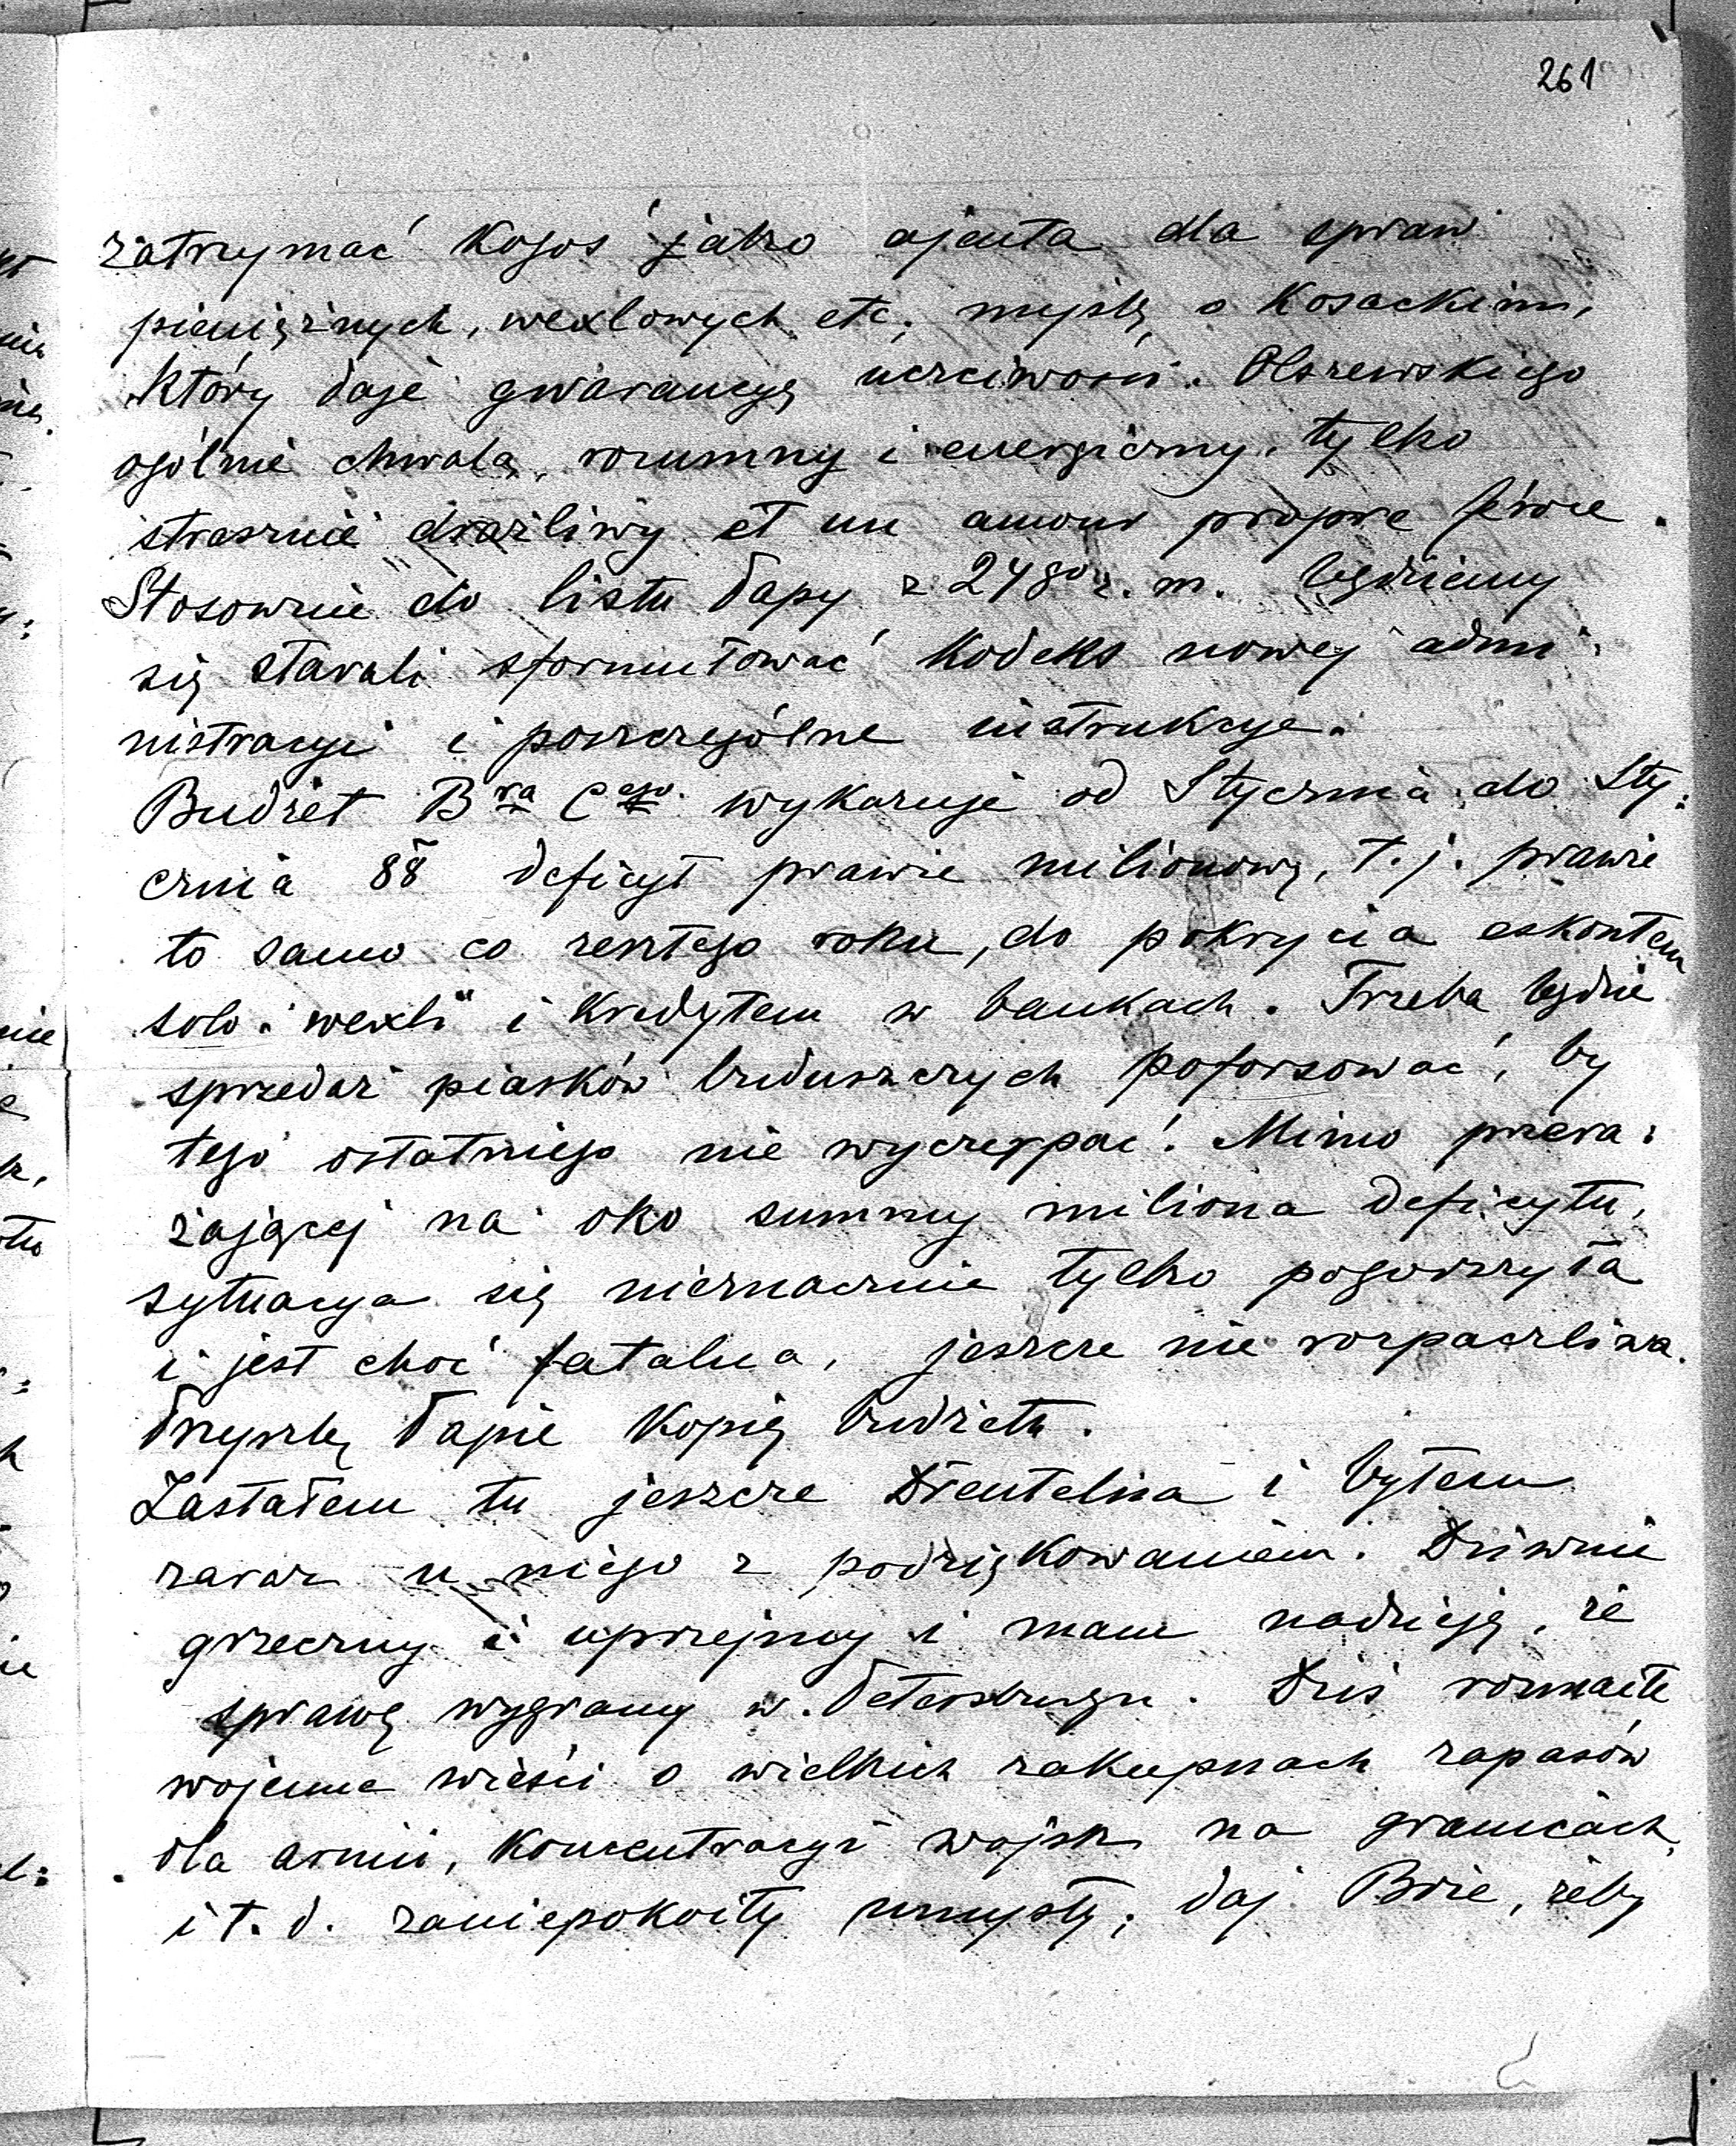 261
zatrzymać kogoś jako ajenta dla spraw
pieniężnych, wexlowych etc; myślę o Kosackim,
który daje gwarancyę uczciwości. Olszewskiego
ogólnie chwalą, rozumny i energiczny, tylko
strasznie draźliwy et un amour propre féroce.
Stosownie do listu Papy z 24go z. m. będziemy
się starali sformułować kodeks nowej admi-
nistracyi i poszczególne instrukcye.
Budżet Bra Cego wykazuje od Stycznia do Sty-
cznia 88 deficyt prawie milionowy, t. j. prawie
to samo co zeszłego roku, do pokrycia eskontem
"solo-wexli" i kredytem w bankach. Trzeba będzie
sprzedaż piasków buduszczych poforsować, by
tego ostatniego nie wyczerpać. Mimo przera-
żającej na oko summy miliona deficytu,
sytuacya się nieznacznie tylko pogorszyła
i jest choć fatalna, jeszcze nie rozpaczliwa.
Przyszlę Papie kopię budżetu.
Zastałem tu jeszcze Drentelna i byłem
zaraz u niego z podziękowaniem. Dziwnie
grzeczny i uprzejmy i mam nadzieję, że
sprawę wygramy w Petersburgu. Dziś rozmaite
wojenne wieści o wielkich zakupnach zapasów
dla armii, koncentracyi wojsk na granicach,
i t. d. zaniepokoiły umysły; daj Boże, żeby